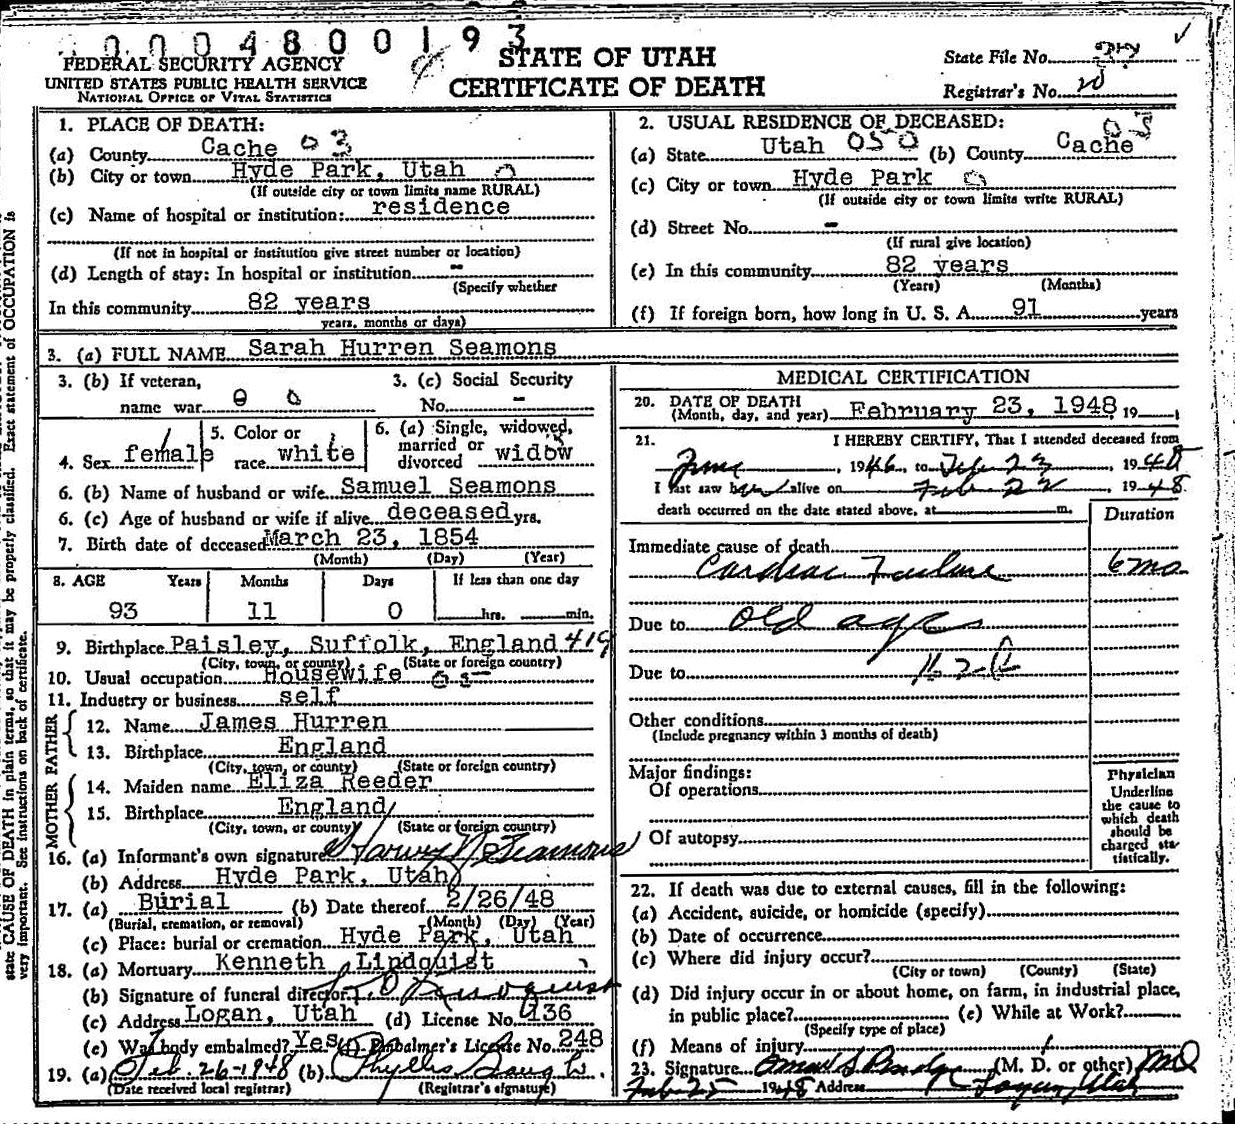 0004800193
FEDERAL SECURITY AGENCY
UNITED STATES PUBLIC HEALTH SERVICE
NATIONAL OFFICE OF VITAL STATISTICS
STATE OF UTAH
CERTIFICATE OF DEATH
State File No.
Registrar's No. 20
state CAUSE OF DEATH in plain terms, so that it may be properly classified. Exact statement of OCCUPATION is
very important. See instructions on back of certificate.
1. PLACE OF DEATH:
(a) County Cache 03
(b) City or town Hyde Park, Utah 0
(If outside city or town limits name RURAL)
(c) Name of hospital or institution: residence
(If not in hospital or institution give street number or location)
(d) Length of stay: In hospital or institution -
(Specify whether
In this community 82 years
years, months or days)
2. USUAL RESIDENCE OF DECEASED:
(a) State Utah 050 (b) County Cache 03
(c) City or town Hyde Park 0
(If outside city or town limits write RURAL)
(d) Street No. -
(If rural give location)
(e) In this community 82 years
(Years) (Months)
(f) If foreign born, how long in U. S. A. 91 years
3. (a) FULL NAME Sarah Hurren Seamons
3. (b) If veteran,
name war 0 0
3. (c) Social Security
No. -
4. Sex female
5. Color or
race white
6. (a) Single, widowed,
married or
divorced widow
6. (b) Name of husband or wife Samuel Seamons
6. (c) Age of husband or wife if alive deceased yrs.
7. Birth date of deceased March 23, 1854
(Month) (Day) (Year)
8. AGE Years Months Days If less than one day
93 11 0 hrs. min.
9. Birthplace Paisley, Suffolk, England 419
(City, town, or county) (State or foreign country)
10. Usual occupation Housewife
11. Industry or business self
FATHER
12. Name James Hurren
13. Birthplace England
(City, town, or county) (State or foreign country)
MOTHER
14. Maiden name Eliza Reeder
15. Birthplace England
(City, town, or county) (State or foreign country)
16. (a) Informant's own signature Harvey N Seamons
(b) Address Hyde Park, Utah
17. (a) Burial (b) Date thereof 2/26/48
(Burial, cremation, or removal) (Month) (Day) (Year)
(c) Place: burial or cremation Hyde Park, Utah
18. (a) Mortuary Kenneth Lindquist
(b) Signature of funeral director Lindquist
(c) Address Logan, Utah (d) License No. 136
(e) Was body embalmed? Yes (f) Embalmer's License No. 248
19. (a) Feb. 26-1948 (b) Phyllis
(Date received local registrar) (Registrar's signature)
MEDICAL CERTIFICATION
20. DATE OF DEATH
(Month, day, and year) February 23, 1948 19
21. I HEREBY CERTIFY, That I attended deceased from
June, 1946, to Feb 23, 1948
I last saw her alive on Feb 22, 1948
death occurred on the date stated above, at m.
Duration
Immediate cause of death
Cardiac Failure 6 mo
Due to old age
Due to
Other conditions
(Include pregnancy within 3 months of death)
Major findings:
Of operations
Of autopsy
Physician
Underline
the cause to
which death
should be
charged sta-
tistically.
22. If death was due to external causes, fill in the following:
(a) Accident, suicide, or homicide (specify)
(b) Date of occurrence
(c) Where did injury occur?
(City or town) (County) (State)
(d) Did injury occur in or about home, on farm, in industrial place,
in public place? (e) While at Work?
(Specify type of place)
(f) Means of injury
23. Signature Omar S Budge (M. D. or other) MD
Feb 25 1948 Address Logan, Utah